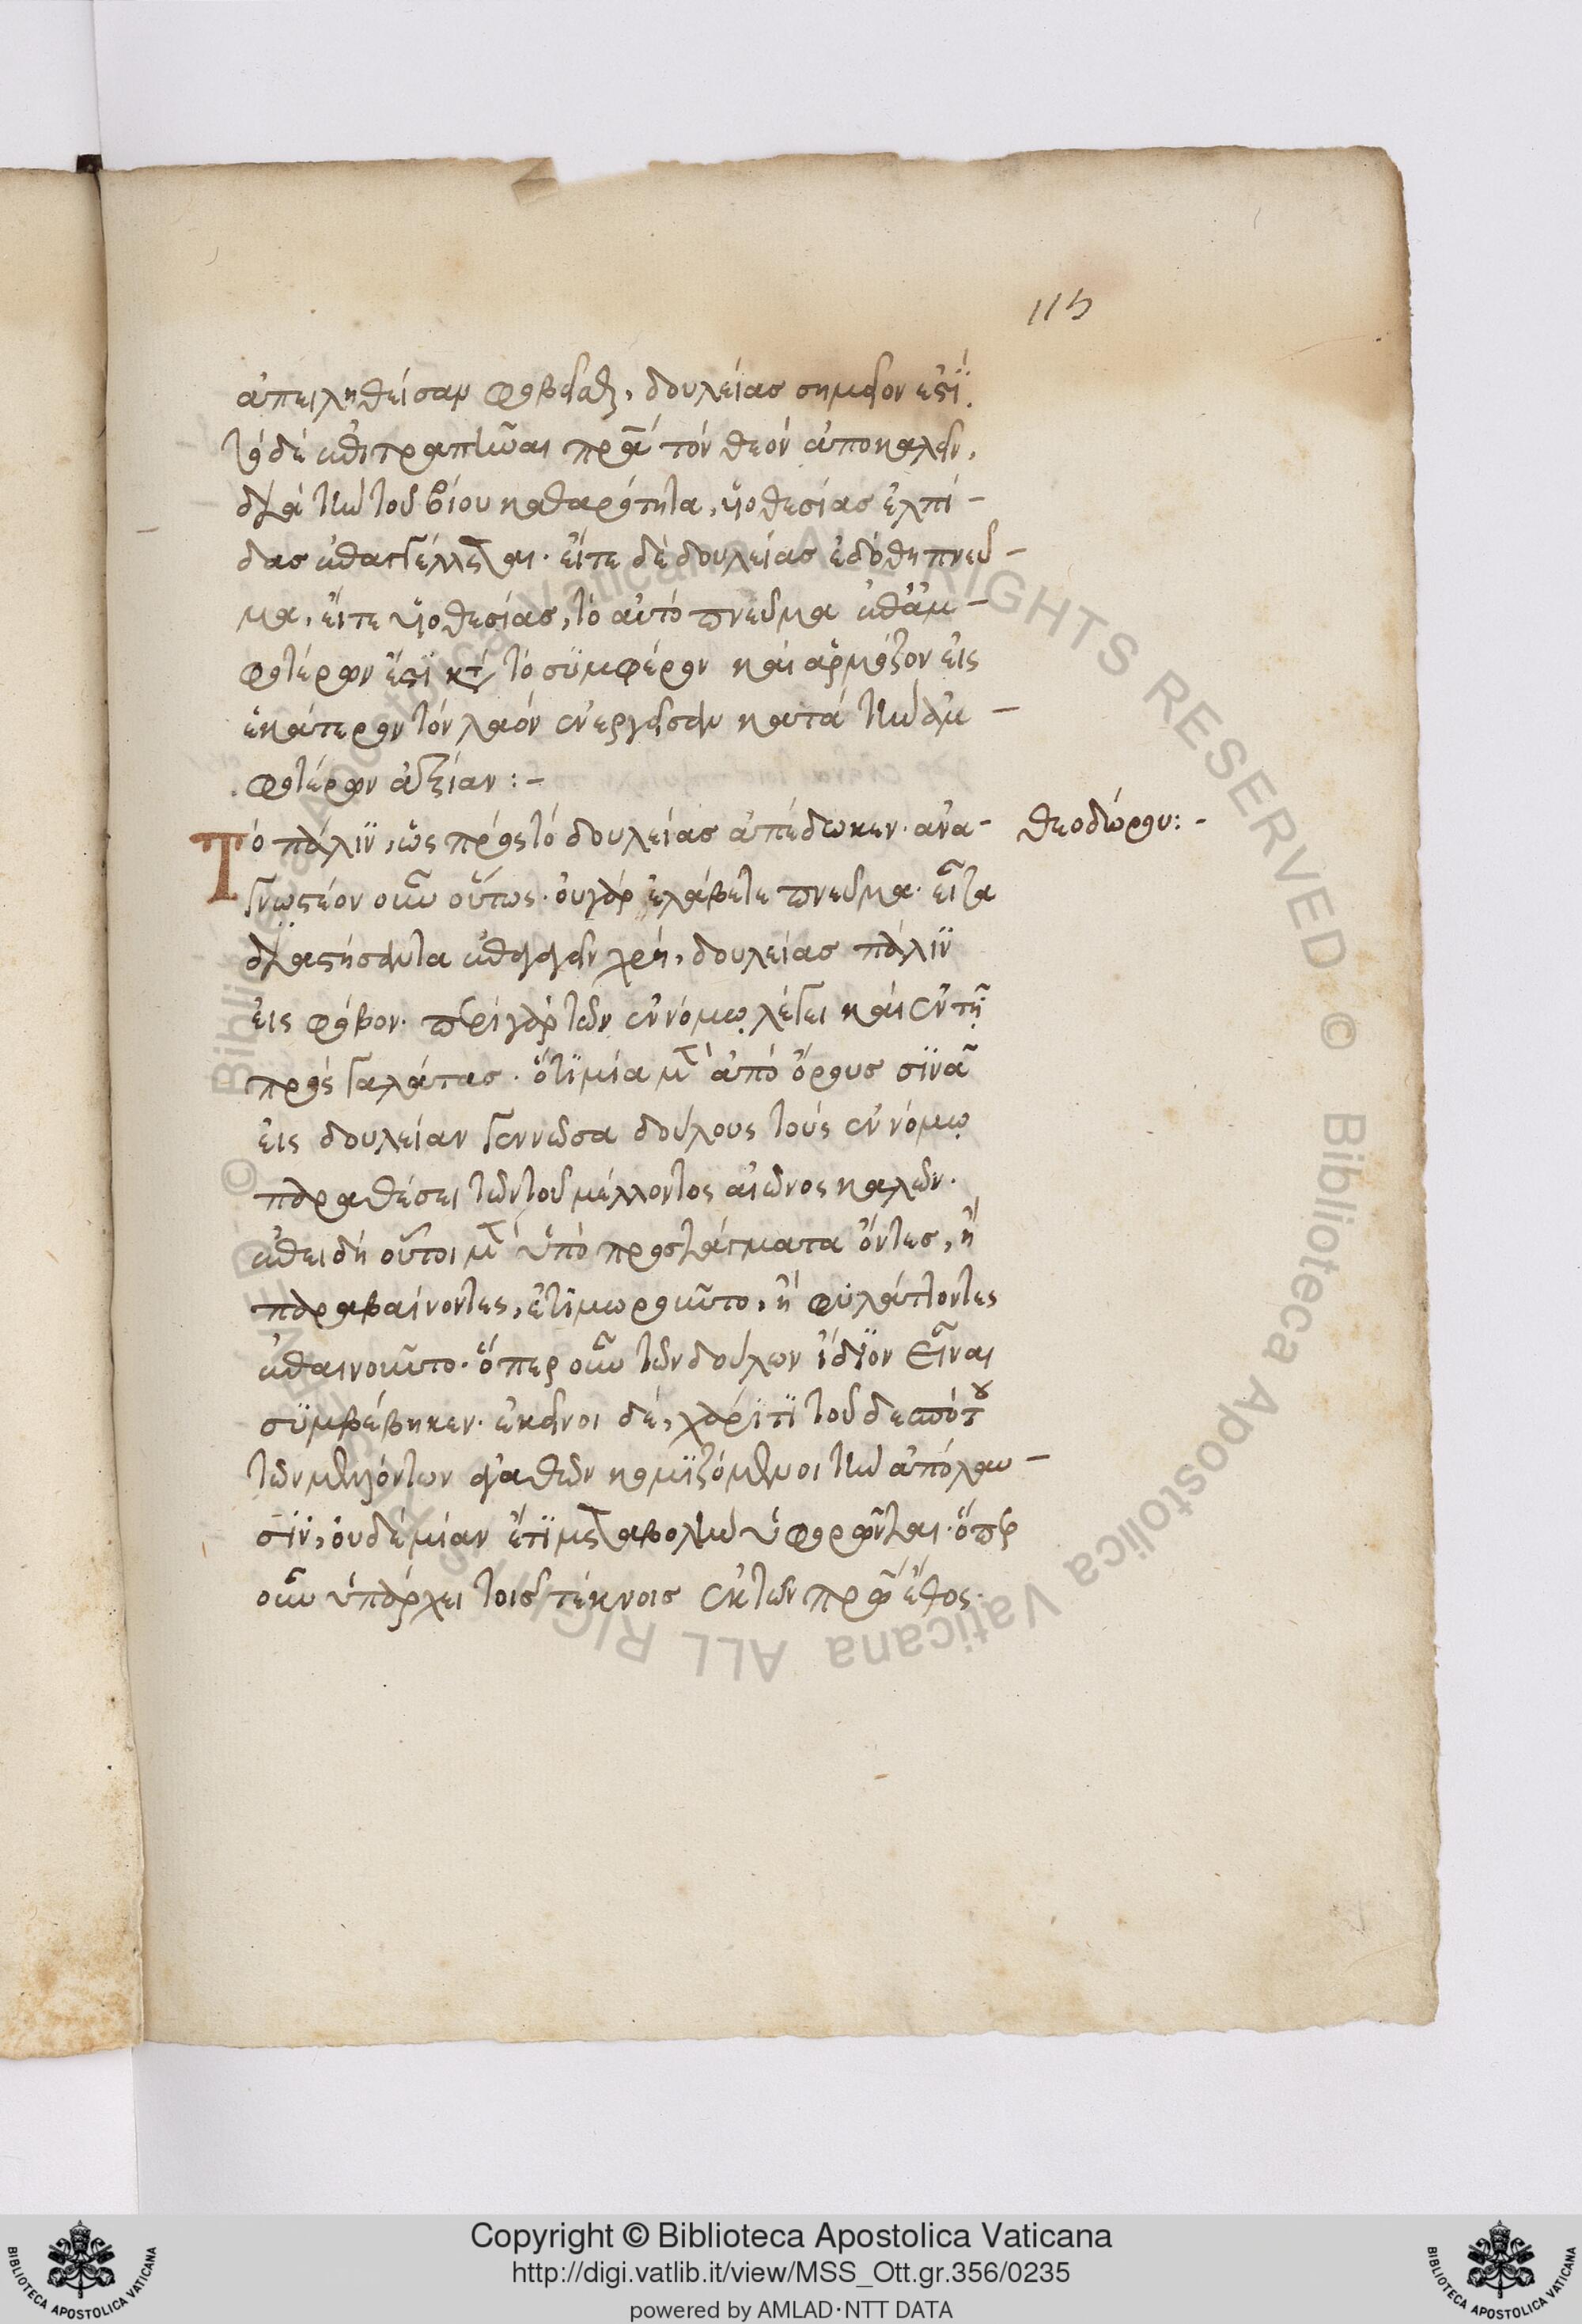 115
ἀπειληθεῖσαν φοβεῖσθαι, δουλείας σημεῖον ἐστί.
τὸ δὲ ἐπιτραπῆναι πρα τὸν θεὸν ἀποκαλεῖν,
διὰ τὴν τοῦ βίου καθαρότητα, υἱοθεσίας ἐλπί-
δας ἐπαγγέλλεται. εἴτε δὲ δουλείας ἐδόθη πνεῦ-
μα, εἴτε υἱοθεσίας, τὸ αὐτὸ πνεῦμα ἐπ' ἀμ-
φοτέρων ἐστὶ κατὰ τὸ συμφέρον καὶ ἁρμόζον εἰς
ἑκάτερον τὸν λαὸν ἐνεργῆσαν κατὰ τὴν ἀμ-
φοτέρων ἀξίαν:-
Τὸ πάλιν, ὡς πρὸς τὸ δουλείας ἀπέδωκεν. ἀνα- θεοδώρου:-
γνωστέον οὖν οὕτως. οὐ γὰρ ἐλάβετε πνεῦμα. εἶτα
διαστήσαντα ἐπαγαγεῖν χρή, δουλείας πάλιν
εἰς φόβον. περὶ γὰρ τῶν ἐν νόμῳ λέγει καὶ ἐν τῇ
πρὸς γαλάτας. ὅτι μία μὲν ἀπὸ ὄρους σινᾶ
εἰς δουλείαν γεννῶσα δούλους τοὺς ἐν νόμῳ
παραθέσει τῶν τοῦ μέλλοντος αἰῶνος καλῶν.
ἐπειδὴ οὗτοι μὲν ὑπὸ προστάγματα ὄντες, ἢ
παραβαίνοντες, ἐτιμωροῦντο, ἢ φυλάττοντες
ἐπαινοῦντο. ὅπερ οὖν τῶν δούλων ἴδιον εἶναι
συμβέβηκεν. ἐκεῖνοι δὲ, χάριτι τοῦ δεσπότου
τῶν μελλόντων ἀγαθῶν κομιζόμενοι τὴν ἀπόλαυ-
σιν, οὐδεμίαν ἔτι μεταβολὴν ὑφορῶνται. ὅπερ
οὖν ὑπάρχει τοῖς τέκνοις ἐκ τῶν πρω ἔθος.
Copyright © Biblioteca Apostolica Vaticana
http://digi.vatlib.it/view/MSS_Ott.gr.356/0235
powered by AMLAD·NTT DATA
BIBLIOTECA APOSTOLICA VATICANA
BIBLIOTECA APOSTOLICA VATICANA
© Biblioteca Apostolica Vaticana ALL RIGHTS RESERVED © Biblioteca Apostolica Vaticana ALL RIGHTS RESERVED